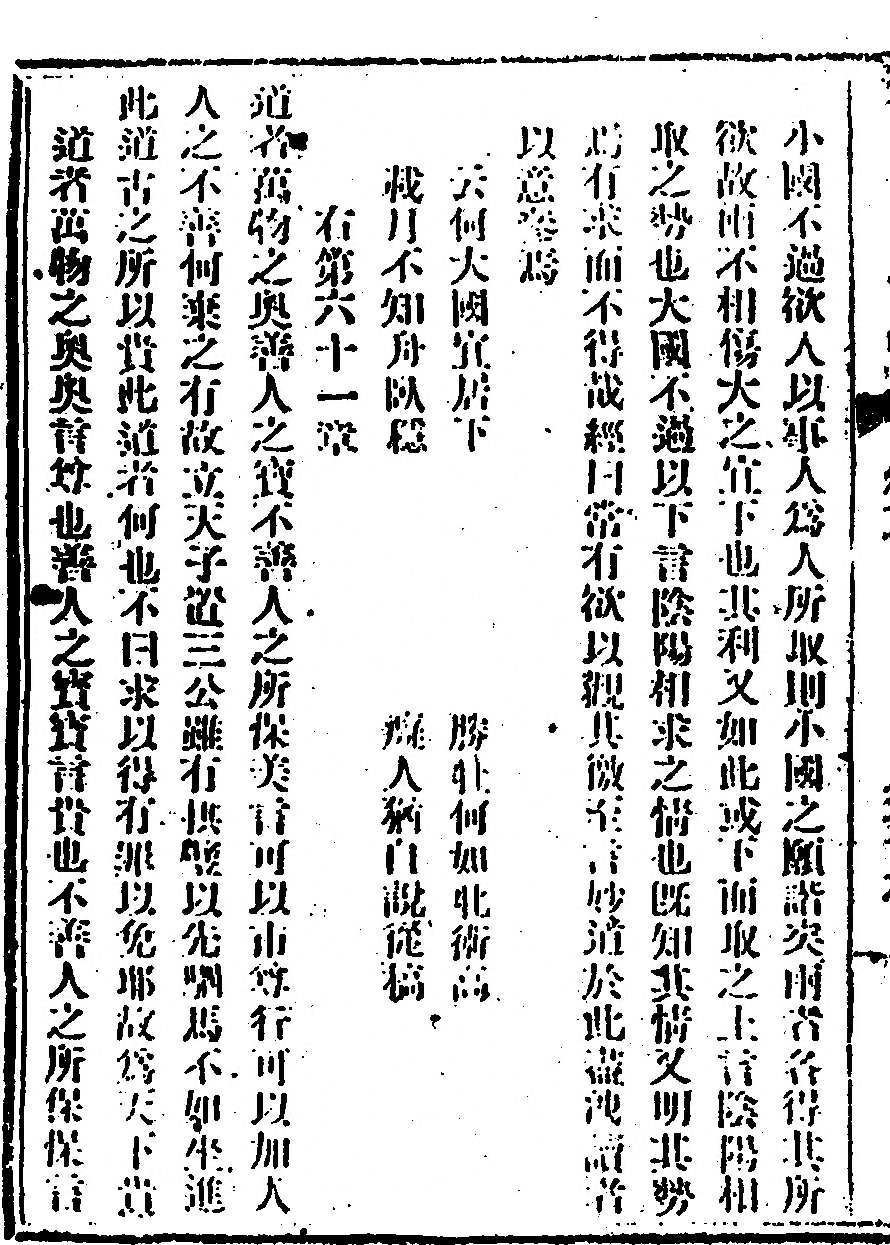 小國不過欲人以事人爲人所取則小國之願諧矣兩者各得其所
欲故兩不相傷大之宜下也其利又如此或下而取之上言陰陽相
取之勢也大國不過以下言陰陽相求之情也旣知其情又明其勢
焉有求而不得哉經曰常有欲以觀其徼至言妙道於此盡洩讀者
以意逆焉
云何大國宜居下 勝牡何如牝術高
載月不知舟臥穩 癡人猶自說從稿
右第六十一章
道者萬物之奥善人之寶不善人之所保美言可以市尊行可以加人
人之不善何棄之有故立天子置三公雖有拱璧以先駟馬不如坐進
此道古之所以貴此道者何也不曰求以得有罪以免耶故爲天下貴
道者萬物之奥奥言尊也善人之寶寶言貴也不善人之所保保言